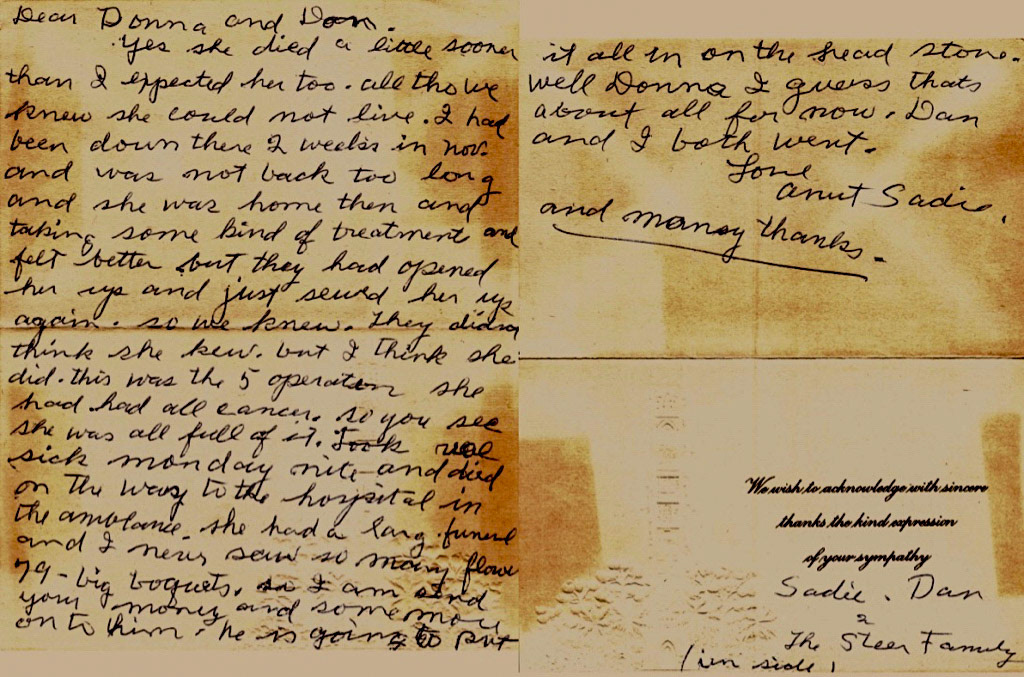 Dear Donna and Dan.
Yes she died a little sooner
than I expected her too. all tho we
knew she could not live. I had
been down there 2 weeks in nov.
and was not back too long
and she was home then and
taking some kind of treatment and
felt better but they had opened
her up and just sewed her up
again. so we knew. They didn
think she kew. but I think she
did. this was the 5 operaten she
had had all cancer. so you see
she was all full of it. Took
sick monday nite and died
on the way to the hospital in
the amblance. she had a larg funerl
and I never saw so many flowe
79 - big boquets. so I am send
your money and some more
on to him. he is going to put
it all in on the head stone.
well Donna I guess thats
about all for now. Dan
and I both went.
Love
anut Sadie.
and many thanks.
We wish to acknowledge with sincere
thanks the kind expression
of your sympathy
Sadie. Dan
2
The Steer Family
(in side)